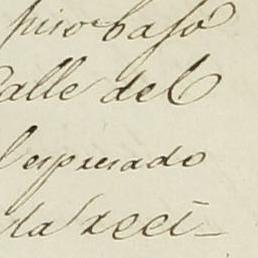 piso bajo
alle del
l espresado
da reci-